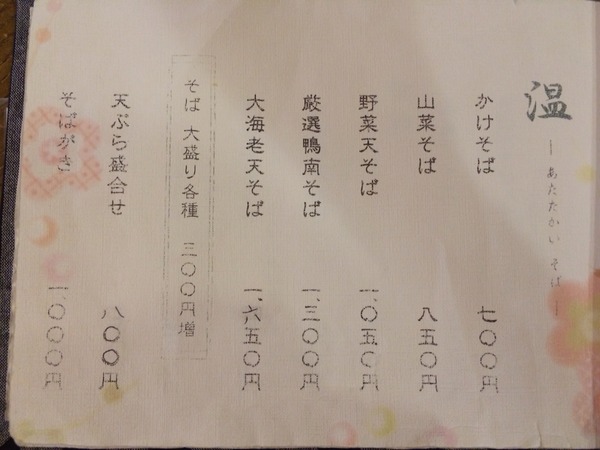 温
― あたたかい そば ―
かけそば 七〇〇円
山菜そば 八五〇円
野菜天そば 一、〇五〇円
厳選鴨南そば 一、三〇〇円
大海老天そば 一、六五〇円
そば 大盛り各種 三〇〇円増
天ぷら盛合せ 八〇〇円
そばがき 一、〇〇〇円